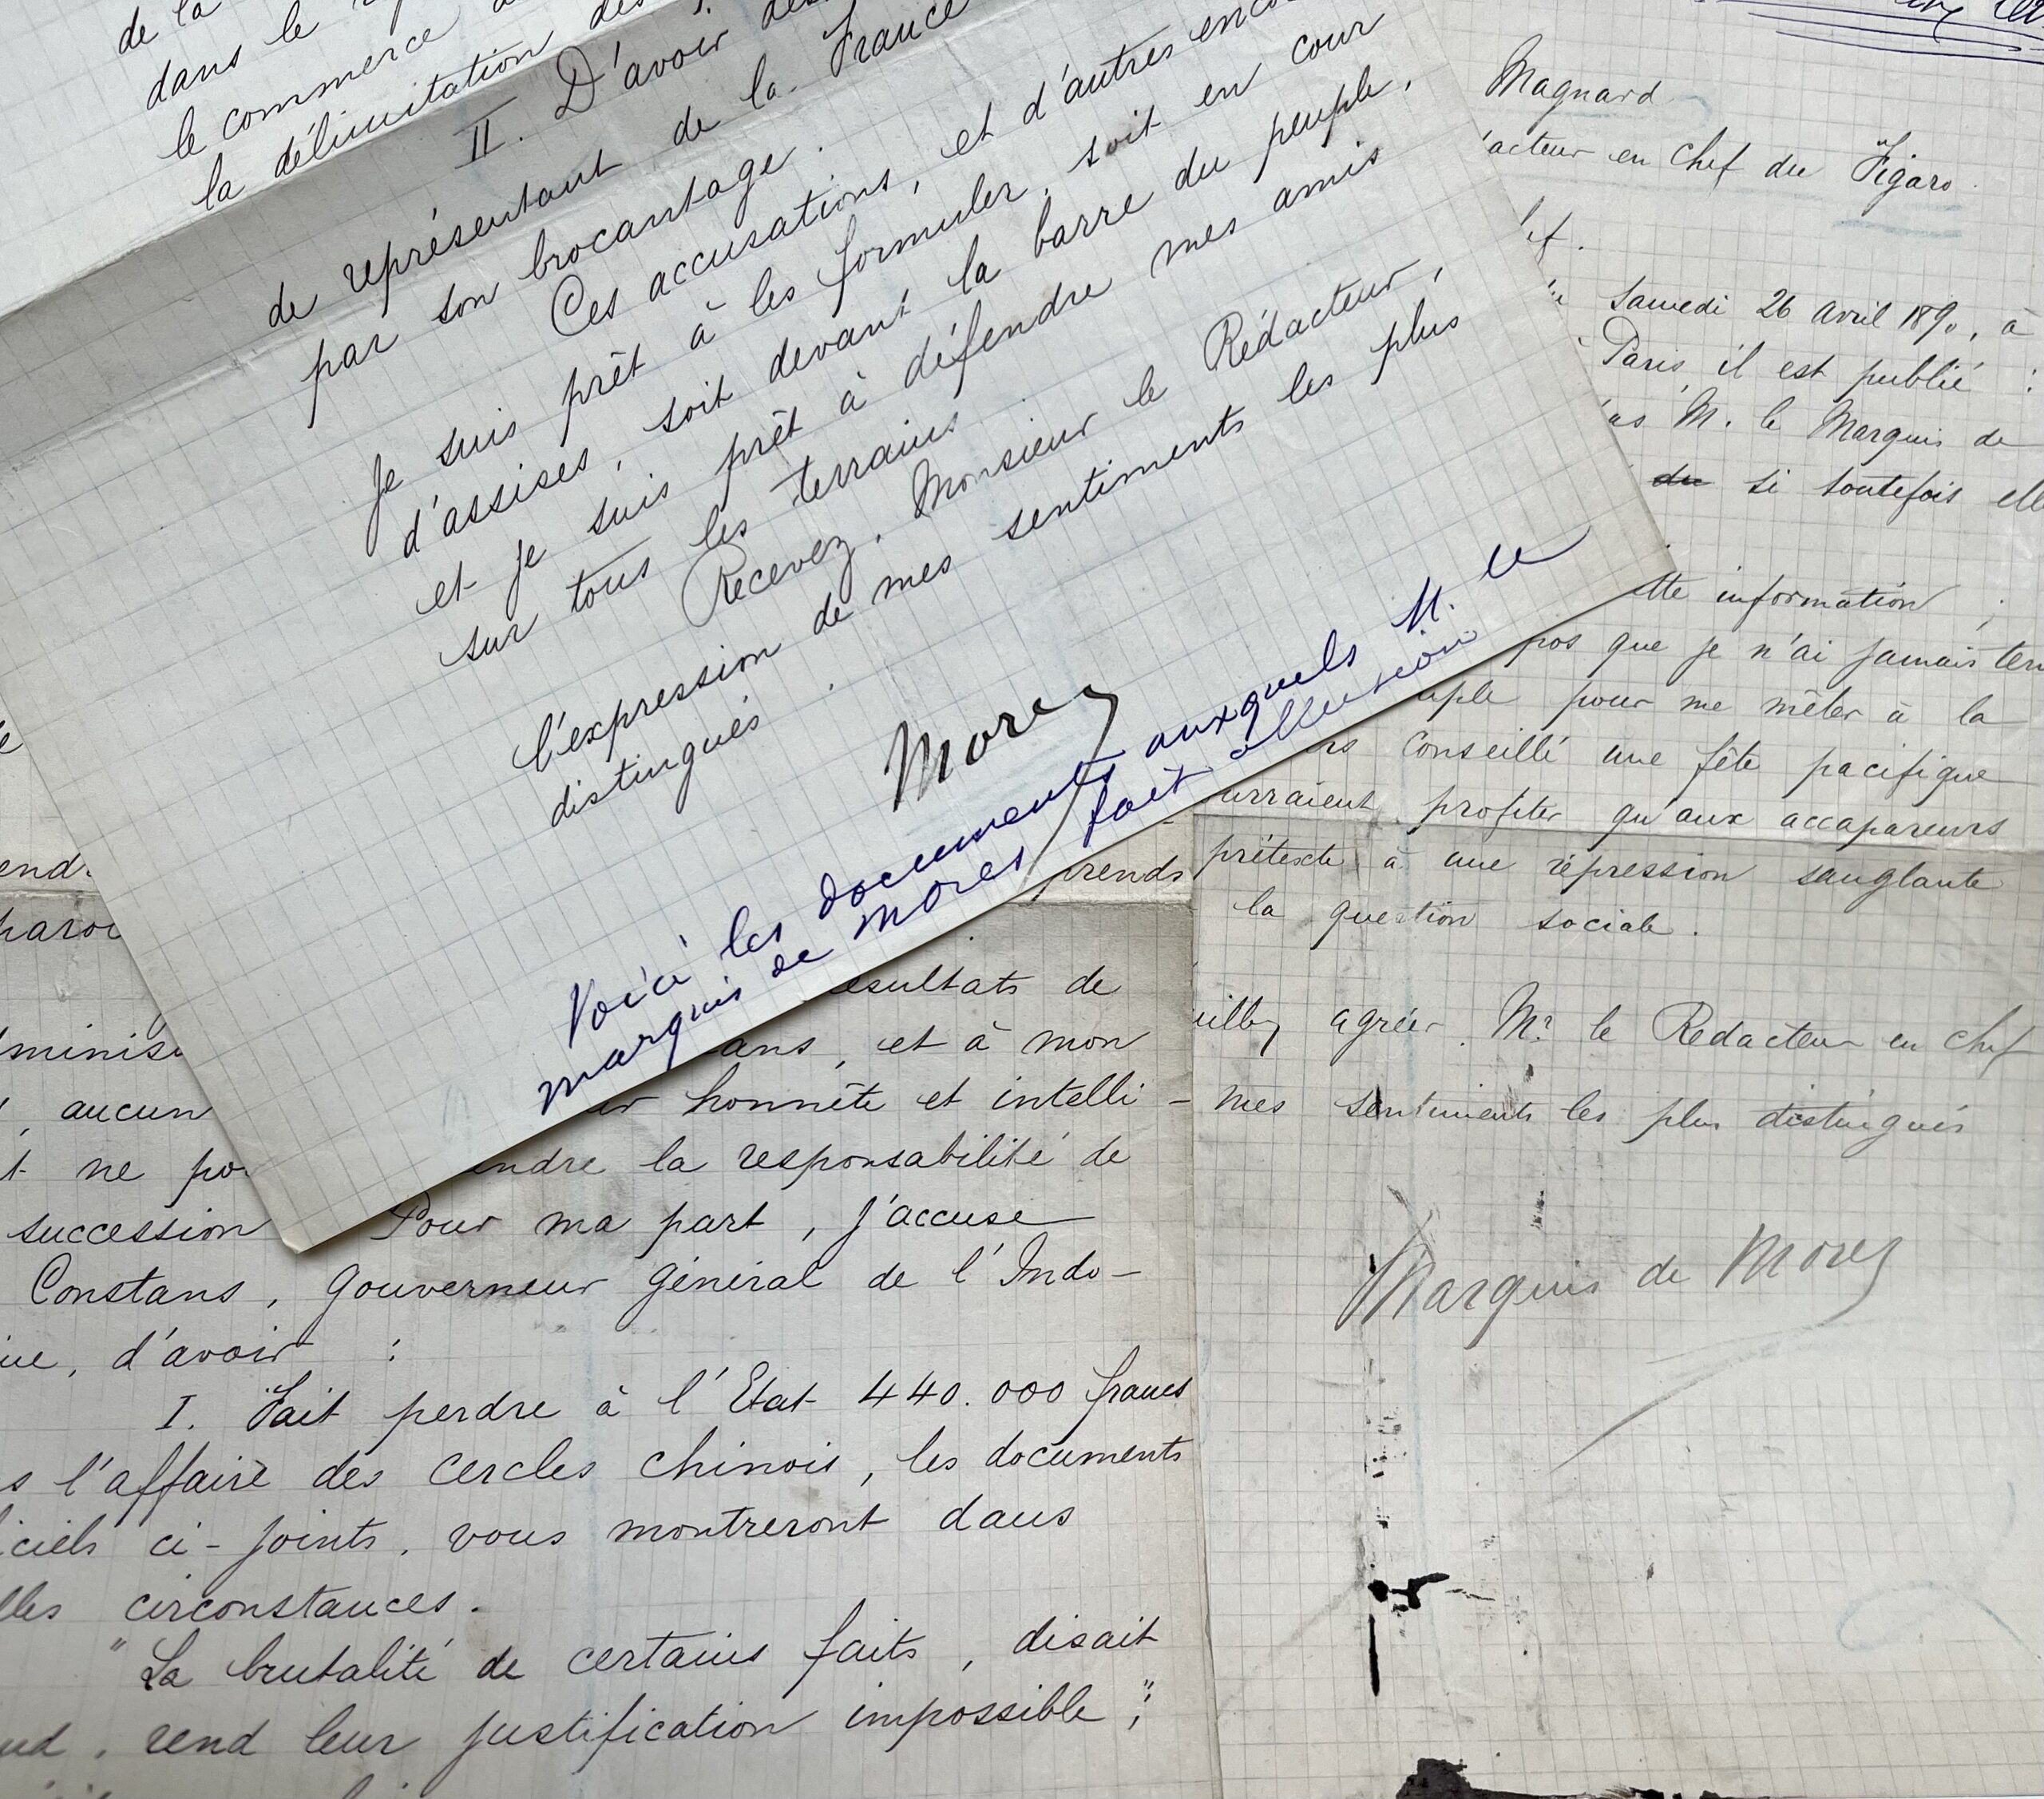 de la
dans le
le commerce
la délimitation des
II. D'avoir
de représentant de la France
par son brocantage.
Ces accusations, et d'autres encore
je suis prêt à les formuler, soit en cour
d'assises, soit devant la barre du peuple,
et je suis prêt à défendre mes amis
sur tous les terrains
Recevez, Monsieur le Rédacteur,
l'expression de mes sentiments les plus
distingués.
Morès
Voici les documents auxquels M. le
marquis de Morès fait allusion
Magnard
acteur en Chef du Figaro.
Samedi 26 Avril 1890, à
Paris, il est publié :
M. le Marquis de
du si toutefois elle
tte information,
pos que je n'ai jamais ten
uple pour me mêler à la
rs conseillé une fête pacifique
urraient profiter qu'aux accapareurs
prétexte à une répression sanglante
la question sociale.
uillez agréer, Mr le Rédacteur en Chef
mes sentiments les plus distingués
Marquis de Morès
prends
ésultats de
ans, et à mon
er honnête et intelli-
, aucun
t ne po
endre la responsabilité de
succession Pour ma part, j'accuse
Constans, Gouverneur Général de l'Indo-
ine, d'avoir :
I. Fait perdre à l'Etat 440.000 francs
s l'affaire des cercles chinois, les documents
iciels ci-joints, vous montreront dans
lles circonstances.
"La brutalité de certains faits, disait
ud, rend leur justification impossible";